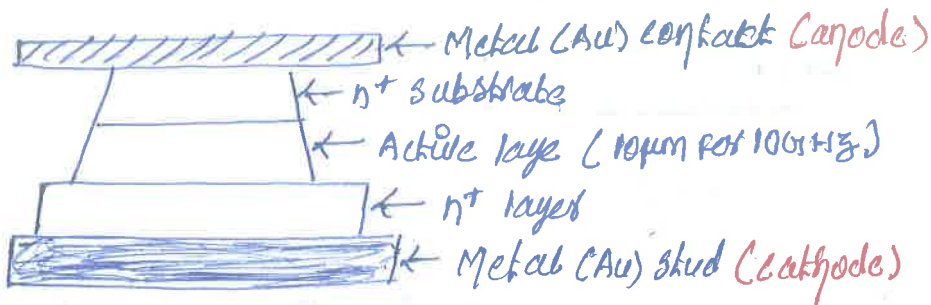 Metal (Au) contact (anode)
n⁺ substrate
Active laye (10μm for 10GHz)
n⁺ layer
Metal (Au) stud (cathode)